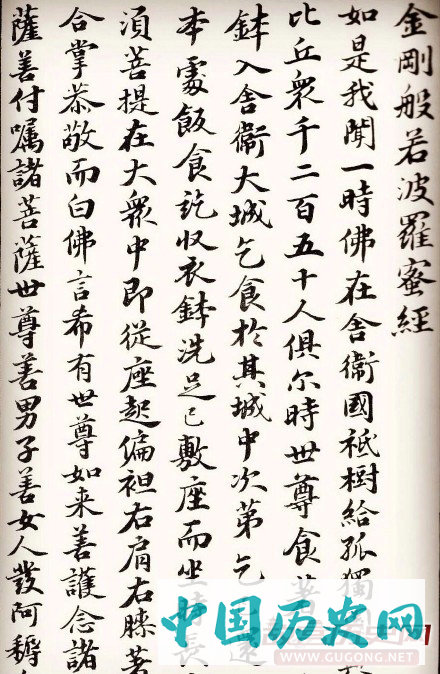 金剛般若波羅蜜經
如是我聞一時佛在舍衛國祇樹給孤獨
比丘衆千二百五十人俱尔時世尊食
鉢入舍衛大城乞食於其城中次第乞
本處飯食訖収衣鉢洗足已敷座而坐時長
須菩提在大衆中即從座起偏袒右肩右膝著
合掌恭敬而白佛言希有世尊如来善護念諸
薩善付嘱諸菩薩世尊善男子善女人發阿耨
中国历史网
WWW.GUGONG.NET